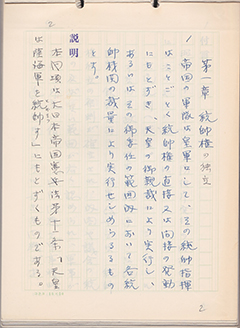 2
第一章 統帥権の独立
1 帝国の軍隊は皇軍にして、その統帥指揮
はことごとく統帥権の直接又は間接の発動
にもとづき、天皇の御親裁により実行し、
あるいはその御委任の範囲内において各統
帥機関の裁量により実行せしめらるるもの
とす。
説明
本項は大日本帝国憲法第十一条「天皇
は陸海軍を統帥す」にもとずくものである。
2